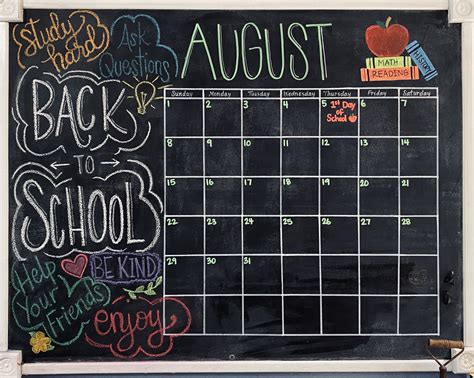 Study hard
Ask Questions
AUGUST
MATH
READING
HISTORY
BACK
TO
SCHOOL
Sunday Monday Tuesday Wednesday Thursday Friday Saturday
1 2 3 4 5 6 7
1st Day
of
School
8 9 10 11 12 13 14
15 16 17 18 19 20 21
22 23 24 25 26 27 28
29 30 31
Help
Your
Friends
BE KIND
enjoy